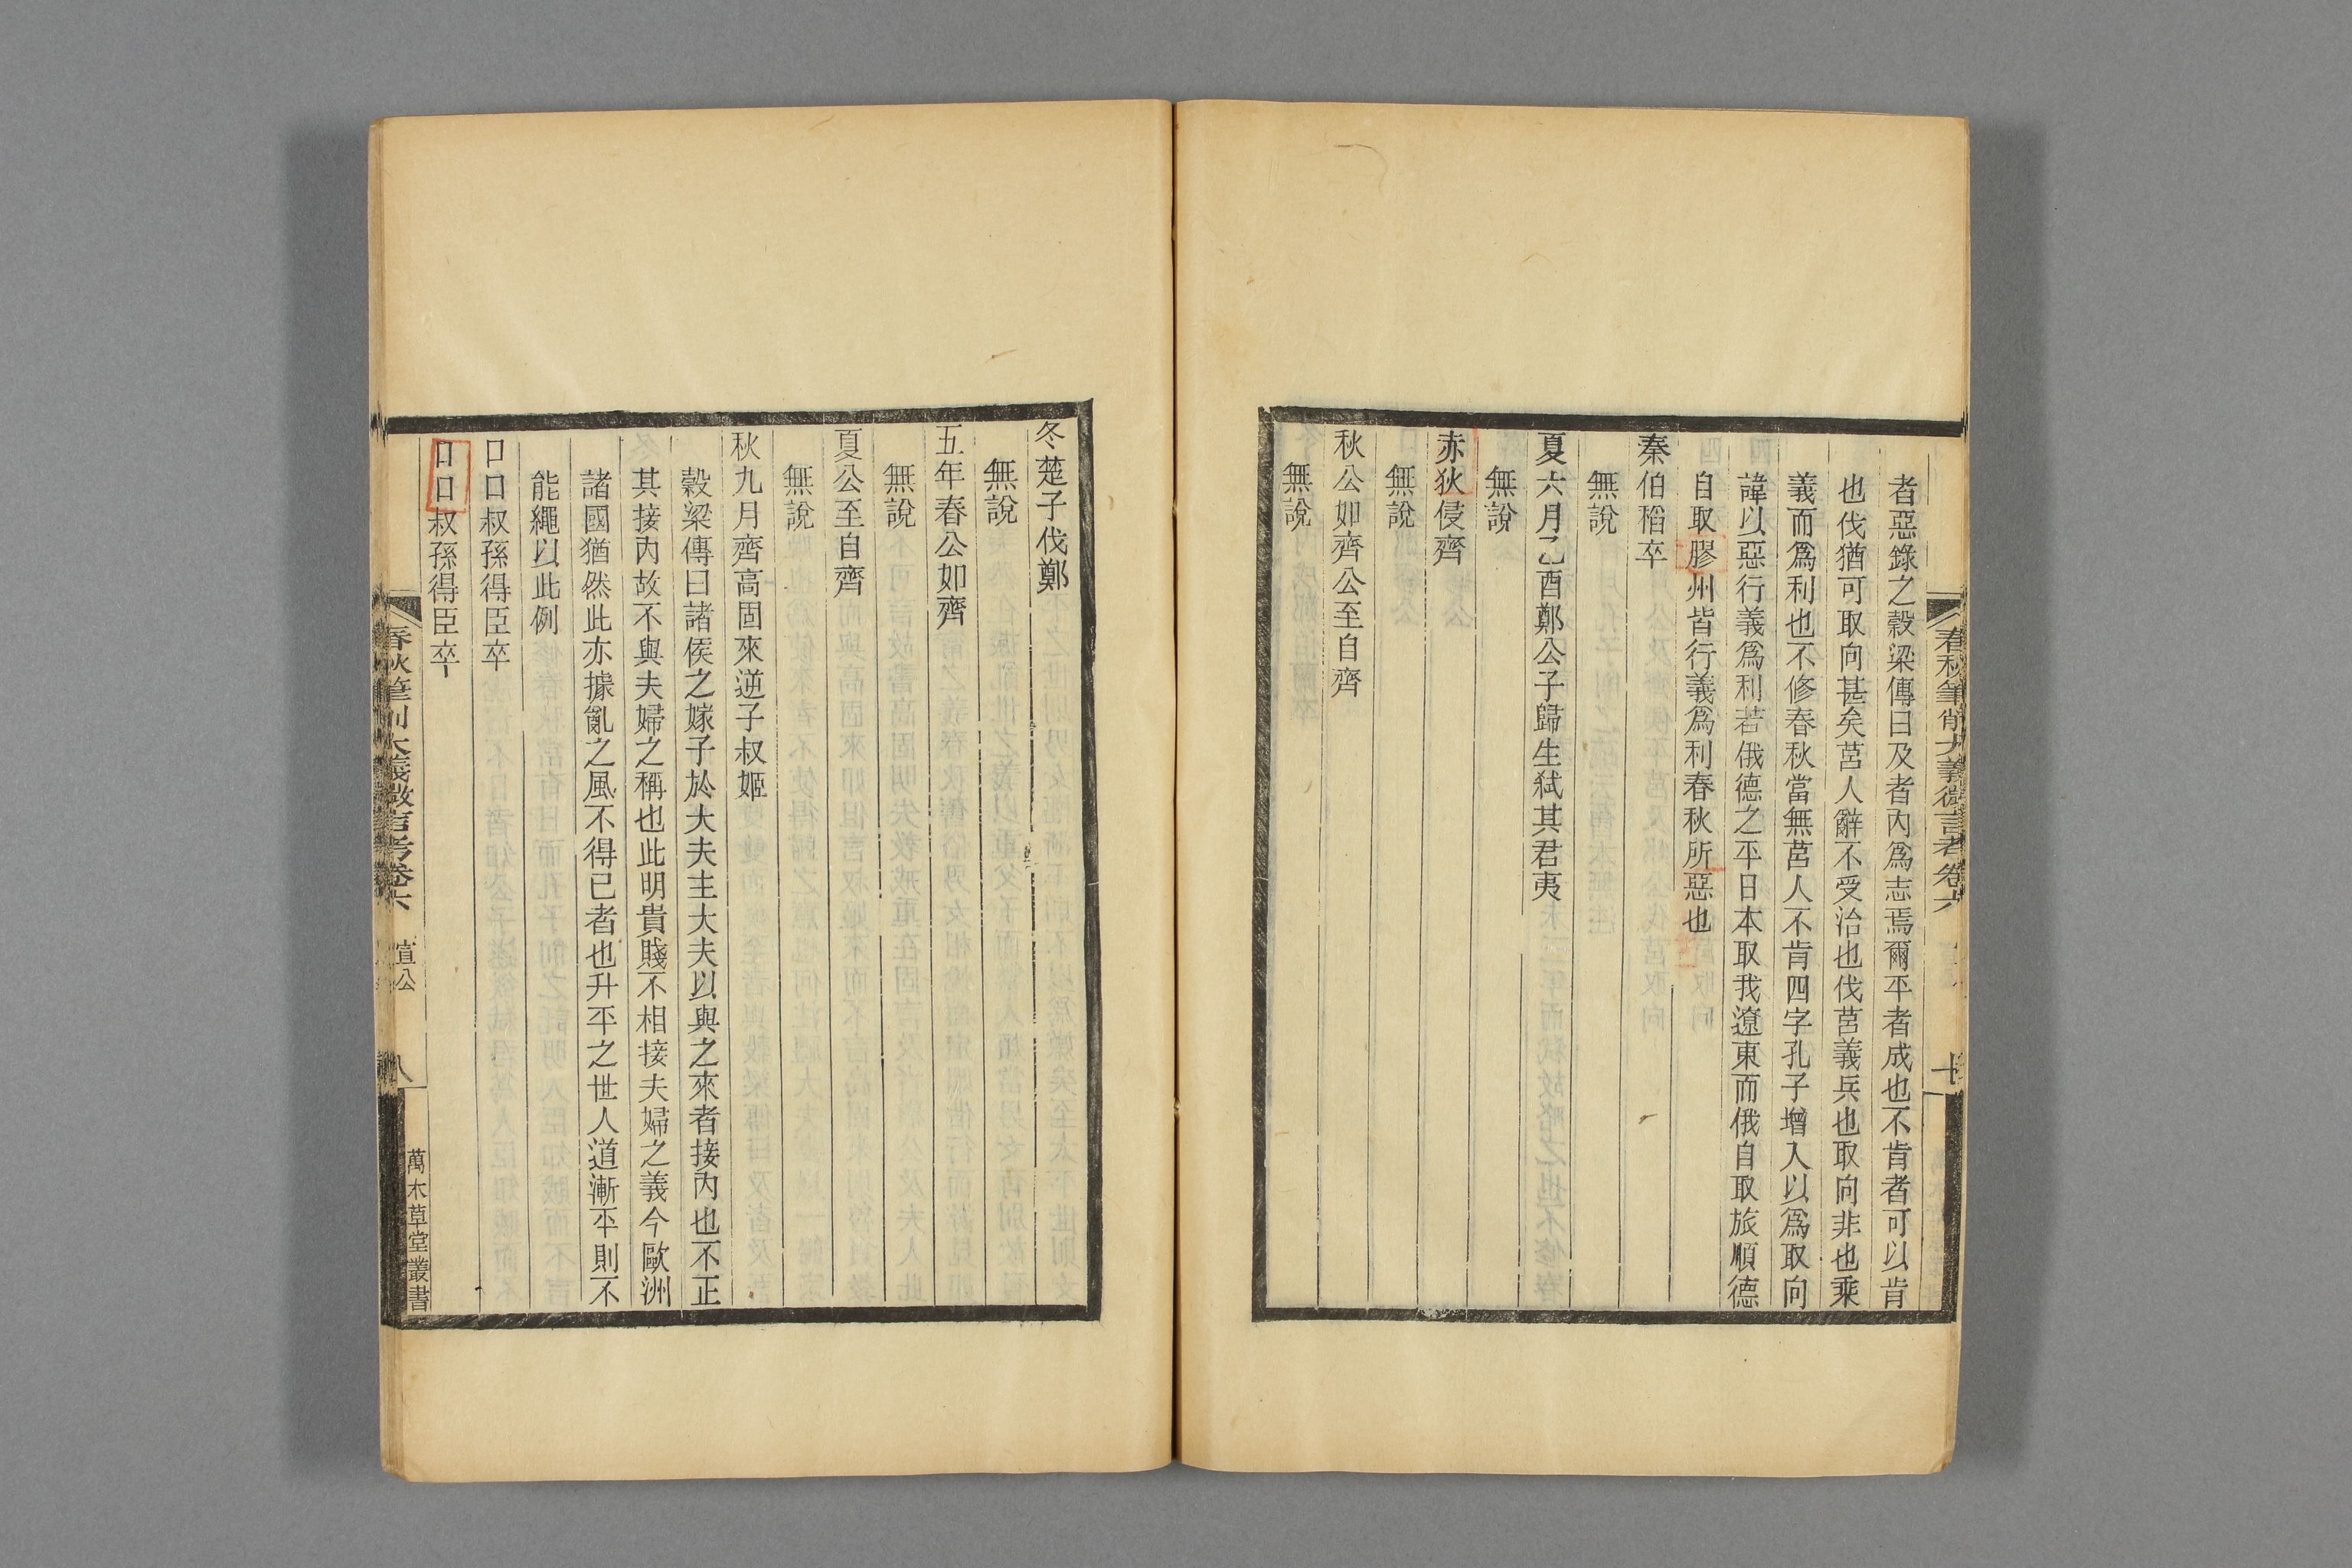 春秋筆削大義微言考卷六
者惡錄之穀梁傳曰及者內爲志焉爾平者成也不肯者可以肯
也伐猶可取向甚矣莒人辭不受治也伐莒義兵也取向非也乘
義而爲利也不修春秋當無莒人不肯四字孔子增入以爲取向
諱以惡行義爲利若俄德之平日本取我遼東而俄自取旅順德
自取膠州皆行義爲利春秋所惡也
秦伯稻卒
無說
夏六月乙酉鄭公子歸生弒其君夷
無說
赤狄侵齊
無說
秋公如齊公至自齊
無說
冬楚子伐鄭
無說
五年春公如齊
無說
夏公至自齊
無說
秋九月齊高固來逆子叔姬
穀梁傳曰諸侯之嫁子於大夫主大夫以與之來者接內也不正
其接內故不與夫婦之稱也此明貴賤不相接夫婦之義今歐洲
諸國猶然此亦據亂之風不得已者也升平之世人道漸平則不
能繩以此例
口口叔孫得臣卒
口口叔孫得臣卒
春秋筆削大義微言考卷六 宣公 八 萬木草堂叢書